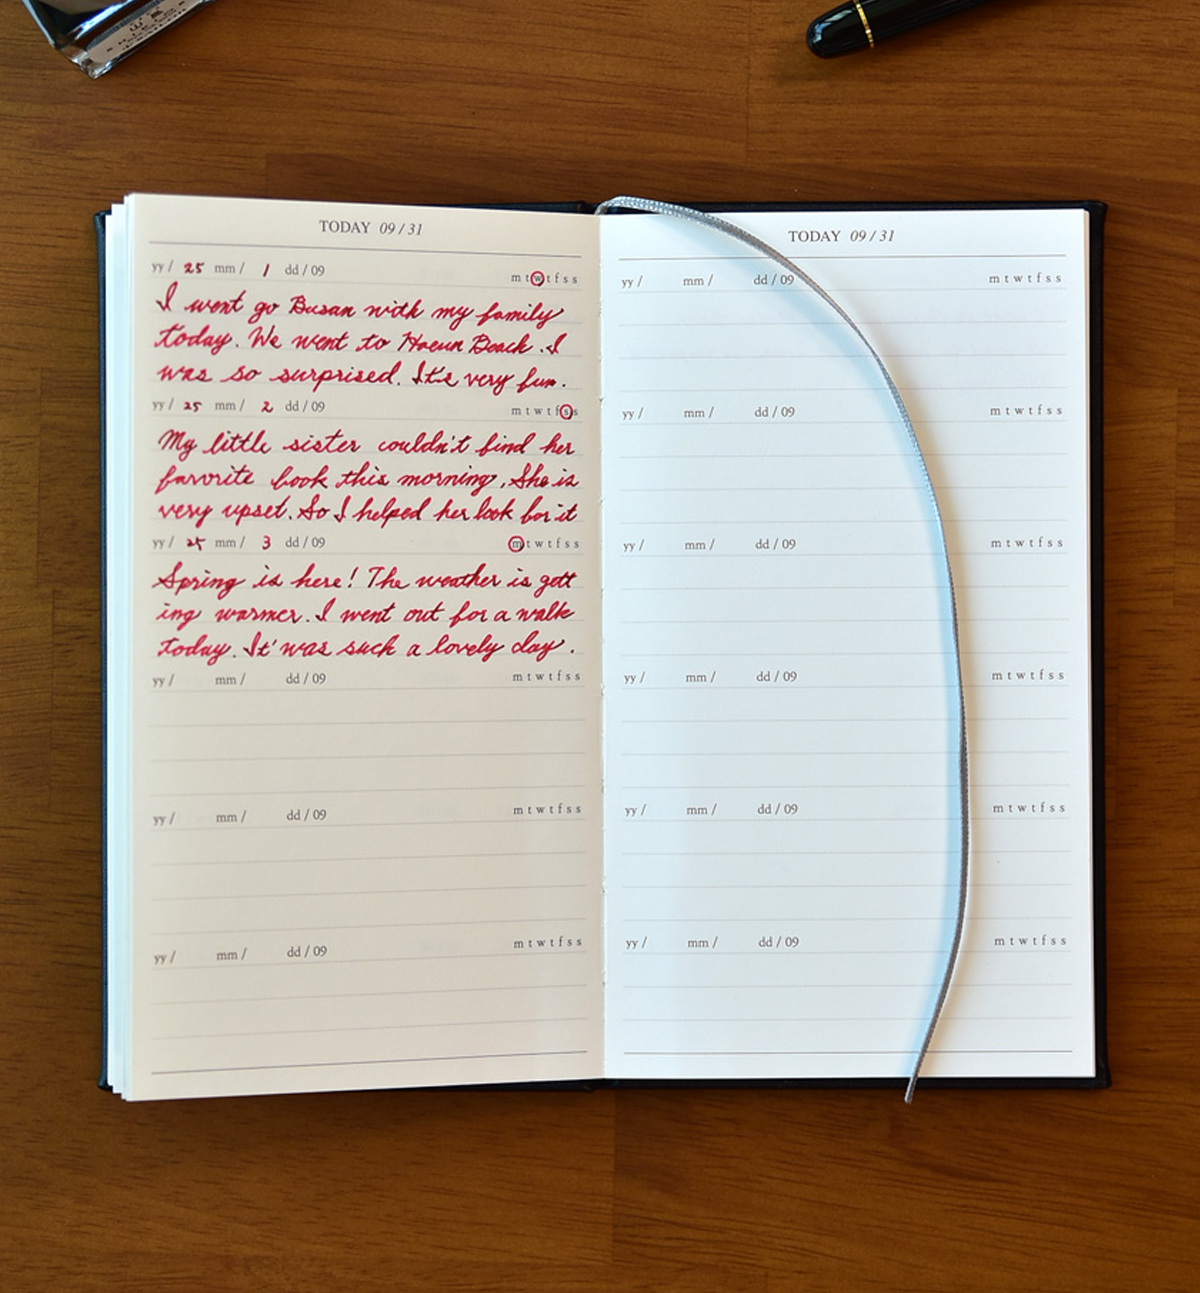 TODAY 09 / 31
yy / 25 mm / 1 dd / 09 m t w t f s s
I went go Busan with my family
today. We went to Haeun Beach. I
was so surprised. It's very fun.
yy / 25 mm / 2 dd / 09 m t w t f s s
My little sister couldn't find her
favorite book this morning. She is
very upset. So I helped her look for it
yy / 25 mm / 3 dd / 09 m t w t f s s
Spring is here! The weather is gett
ing warmer. I went out for a walk
today. It' was such a lovely day.
yy / mm / dd / 09 m t w t f s s
yy / mm / dd / 09 m t w t f s s
yy / mm / dd / 09 m t w t f s s
TODAY 09 / 31
yy / mm / dd / 09 m t w t f s s
yy / mm / dd / 09 m t w t f s s
yy / mm / dd / 09 m t w t f s s
yy / mm / dd / 09 m t w t f s s
yy / mm / dd / 09 m t w t f s s
yy / mm / dd / 09 m t w t f s s